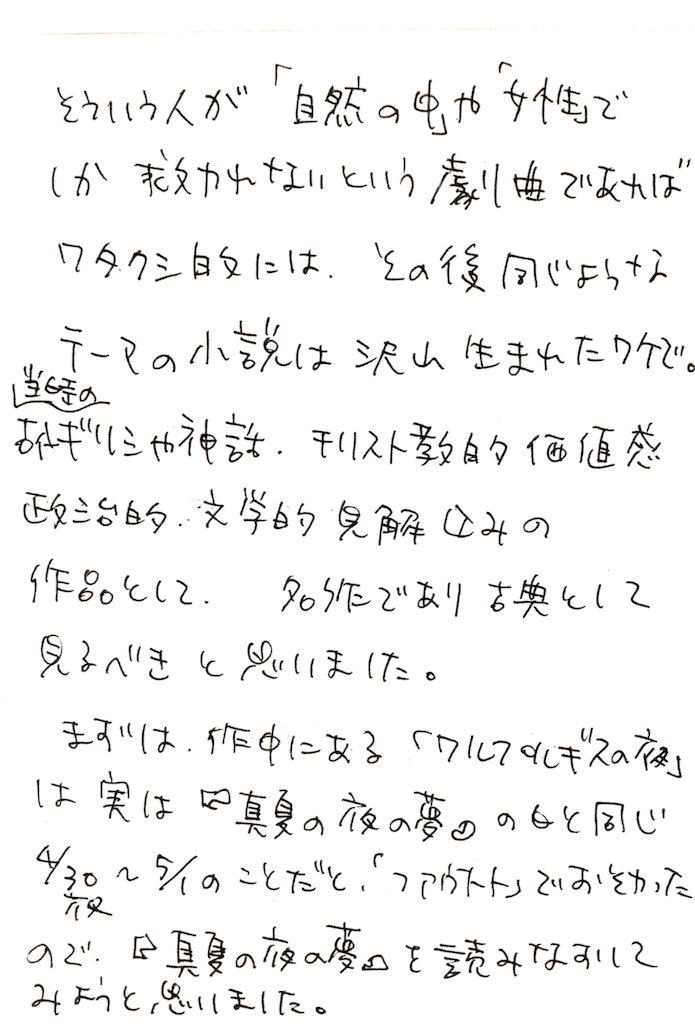 そういう人が「自然の中」や「女性」で
しか救われないという劇曲であれば
ワタクシ的には、その後同じような
テーマの小説は沢山生まれたワケで。
当時の
おけギリシャ神話、キリスト教的価値感
政治的、文学的見解込みの
作品として、名作であり古典として
見るべきと思いました。
まずは、作中にある「ワルプルギスの夜」
は実は『真夏の夜の夢』のと同じ
4/30〜5/1のことだと、「ファウスト」でおそわった
夜
ので、『真夏の夜の夢』を読みなおして
みようと思いました。